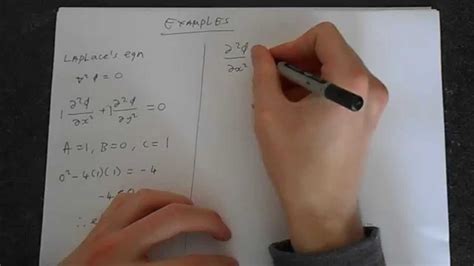 EXAMPLES
Laplace's eqn
∇²φ = 0
1 ∂²φ/∂x² + 1 ∂²φ/∂y² = 0
A = 1, B = 0, C = 1
0² - 4(1)(1) = -4
-4 < 0
∴ e
∂²φ/∂x²